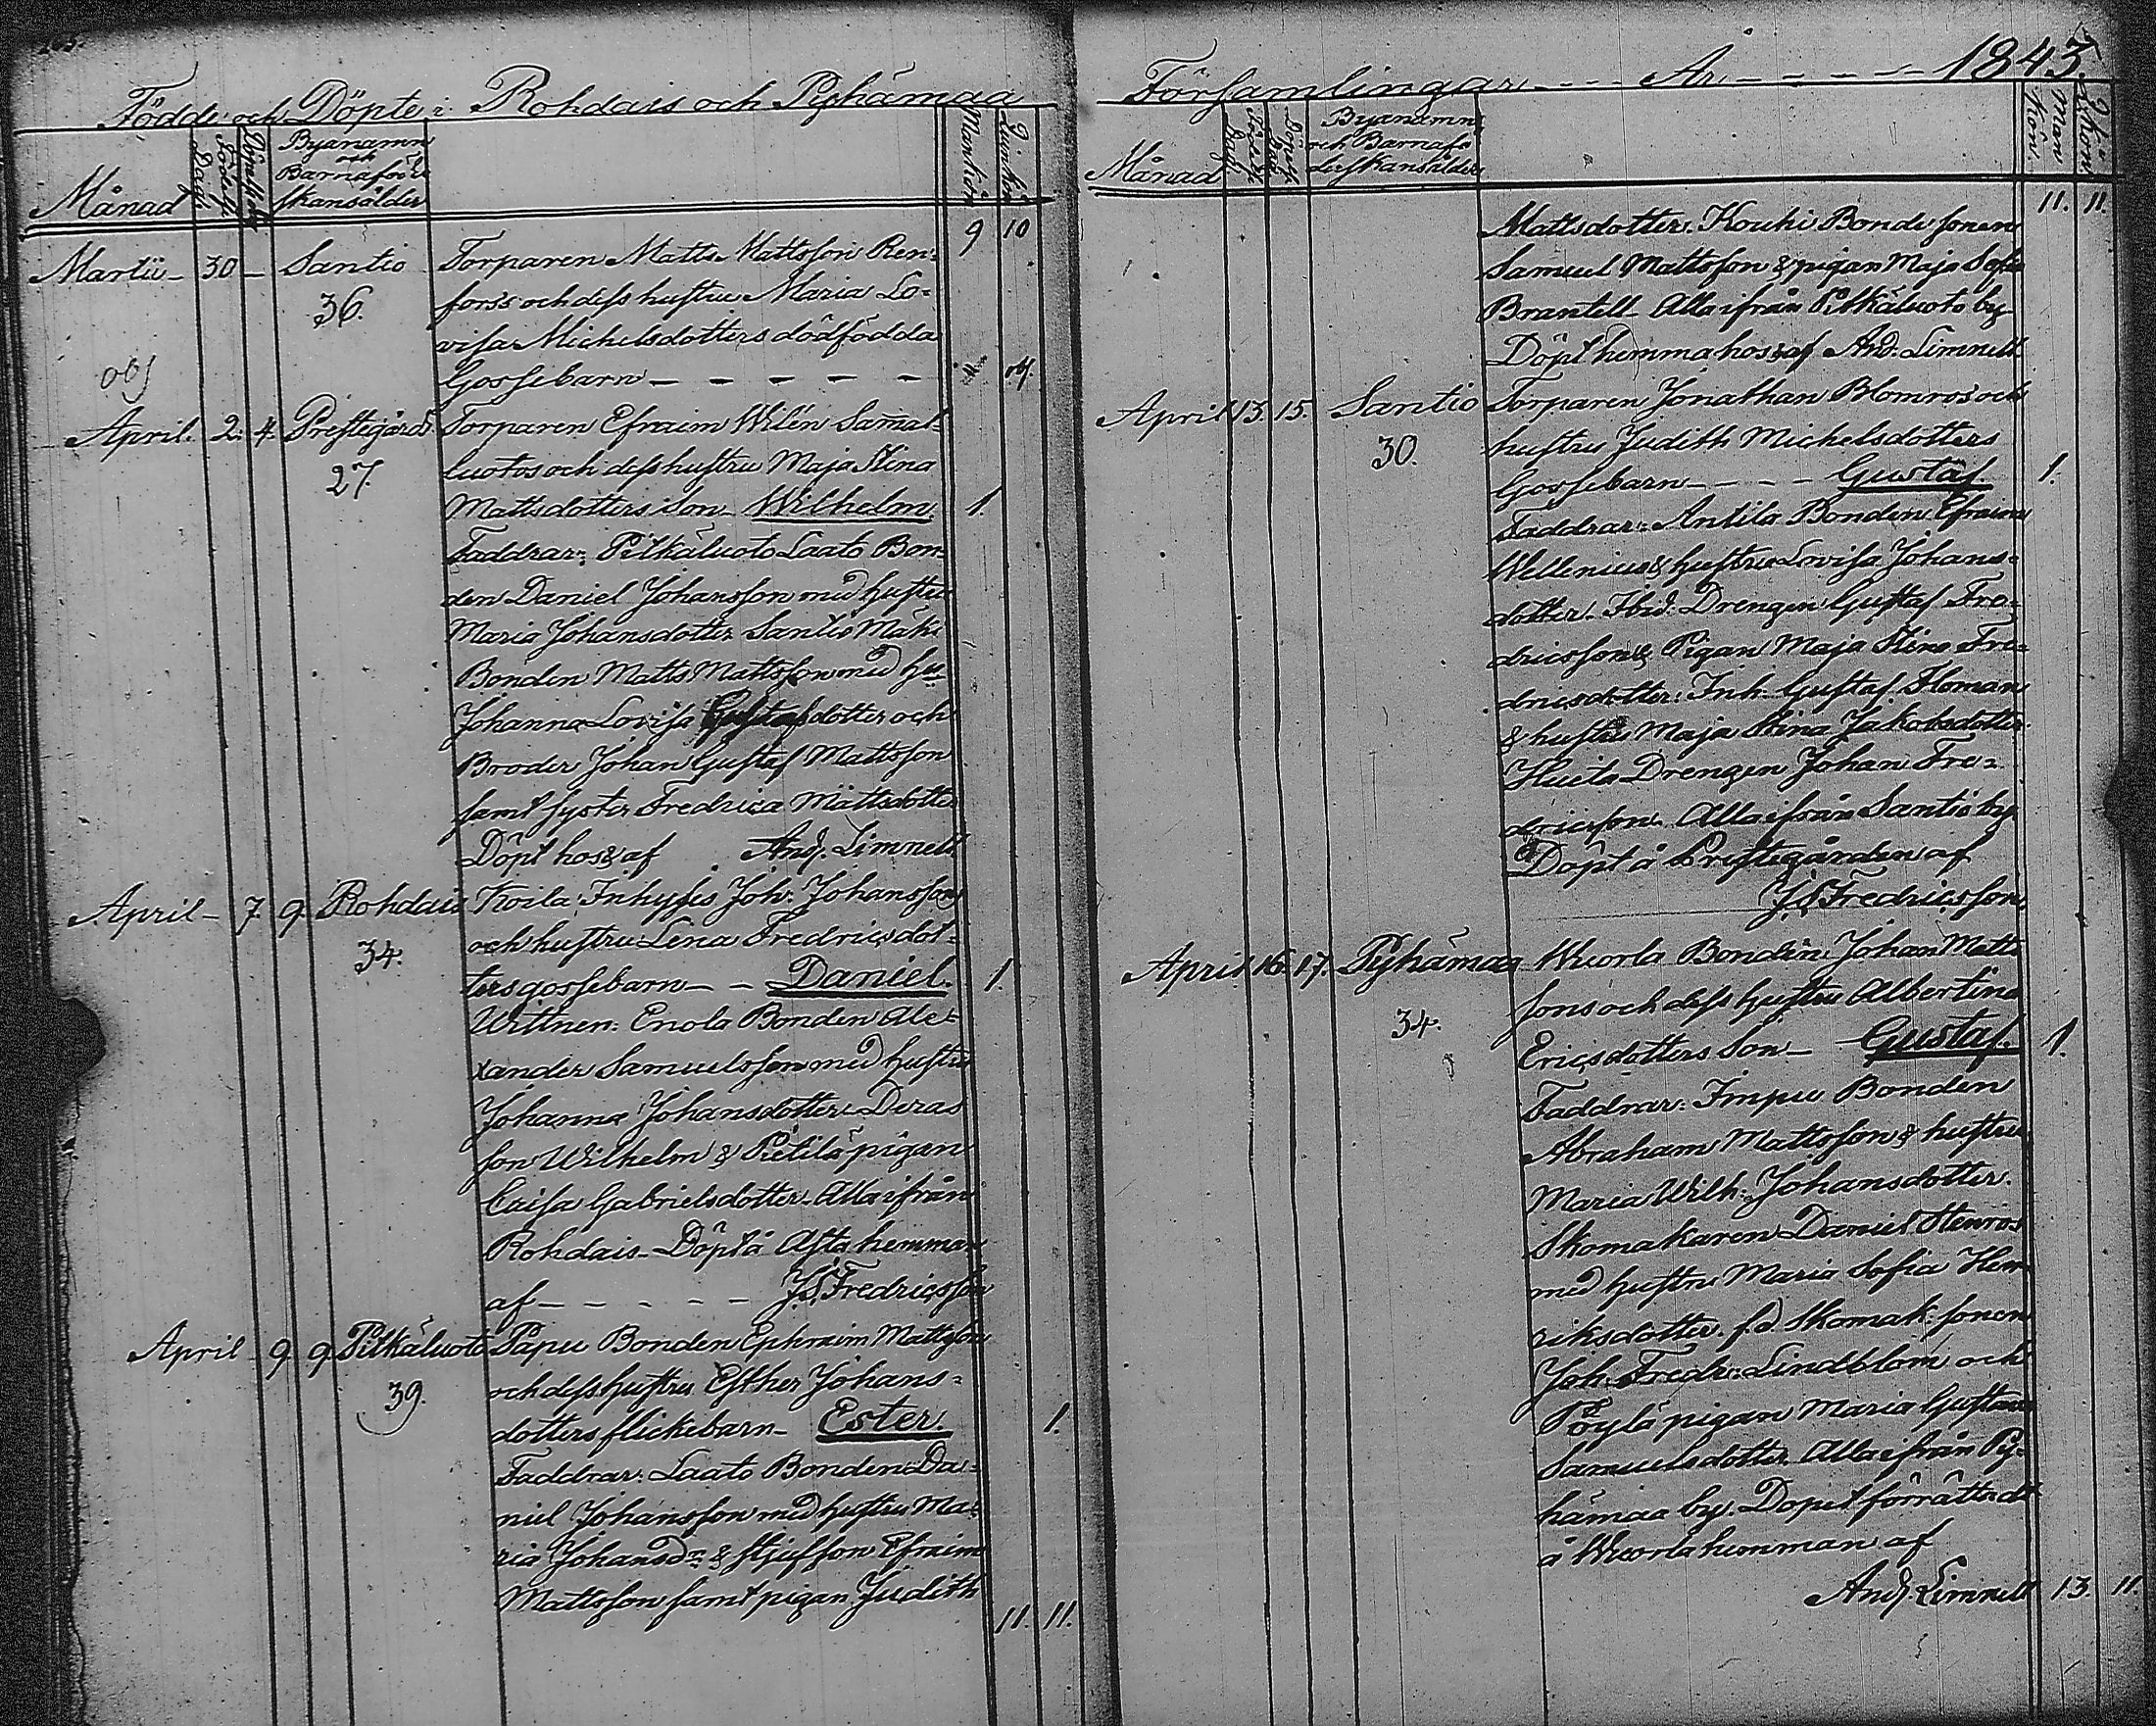 Födde och Döpte i Rohdais och Pyhämaa
Månad
Födelse Dag
Byanamn och Barnaföd.
skans ålder
Mankön
Quinkön
9 10
Martii - 30 - Santio Torparen Matts Mattsson Ren-
36. fors's och dess hustru Maria Lo-
visa Michelsdotters dödfödda
obs Gossebarn - - - - - -
April. 2. 4. Prestegård Torparen Efraim Wilén Samal-
27. luotos och dess hustru Maja Stina
Mattsdotters Son - Wilhelm 1
Faddrar: Pitkäluoto Laato Bon-
den Daniel Johansson med hustru
Maria Johansdotter Santio Mäki
Bonden Matts Mattsson med hu-
Johanna Lovisa Gustafsdotter och
Broder Johan Gustaf Mattsson
samt syster Fredrica Mattsdotter
Döpt hos & af And. Limnell
April - 7. 9. Rohdais Koila Inhyses Joh. Johanssons
34. och hustru Lena Fredricsdot-
ters gossebarn - - Daniel. 1.
Wittnen: Enola Bonden Ale-
xander Samuelsson med hustru
Johanna Johansdotter Deras
son Wilhelm & Pietilä pigan
Caisa Gabrielsdotter. Alla ifrån
Rohdais. Döpt å hemman
af - - - - - J. S. Fredricsson
April 9. 9. Pitkäluoto Papu Bonden Ephraim Mattsson
39. och dess hustru Esther Johans-
dotters flickebarn - Ester. 1.
Faddrar: Laato Bonden Da-
niel Johansson med hustru Ma-
ria Johansdr & styfson Efraim
Mattsson samt pigan Judith
11. 11.
Församlingar - - - År - - - - - 1843.
Månad
Byanamn
och Barnafö
derskans ålder
Man Kön
11. 11.
Mattsdotter. Kouhi Bonde sonen
Samuel Mattsson & pigan Maja Sofia
Brantell - Alla ifrån Pitkäluoto by
Döpt hemma hos & af And. Limnell
April 13. 15. Santio Torparen Jonathan Blomros och
30. hustru Judith Michelsdotters
Gossebarn - - - - Gustaf. 1.
Faddrar: Antila Bonden Efraim
Wellenius & hustru Lovisa Johans-
dotter. Ibid. Drengen Gustaf Fre-
dricsson & Pigan Maja Stina Fre-
dricsdotter: Inh. Gustaf Floman
& hustru Maja Stina Jakobsdotter
Drengen Johan Fre-
dricsson. Alla ifrån Santio by
Döpt å Prestegården af
J. S. Fredricsson
April 16. 17. Pyhämaa Wuorla Bonden Johan Matts
34. sons och dess hustru Albertina
Ericsdotters Son - Gustaf. 1.
Faddrar: Impu Bonden
Abraham Mattsson & hustru
Maria Wilh. Johansdotter.
Skomakaren Daniel Stenros
med hustru Maria Sofia Hen
riksdotter. f.d. Skomak. sonen
Joh. Fredr. Lindblom och
Pöylä pigan Maria Gustava
Samuelsdotter. Alla ifrån Py-
hämaa by. Dopet förrättadt
å Wuorla hemman af
And. Limnell 13. 11.